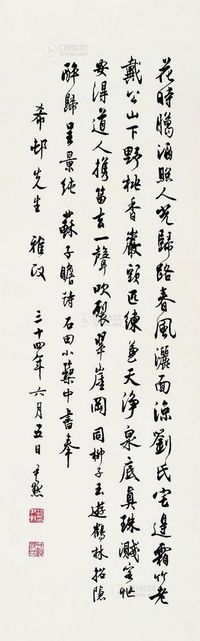 花時臘酒照人光歸路春風灑面涼劉氏宅邊霜竹老
戴公山下野桃香巖頭匹練兼天淨泉底真珠濺客忙
安得道人攜笛去一聲吹裂翠崖岡同柳子玉遊鶴林招隱
醉歸呈景純 蘇子瞻詩 石田小築中書奉
希邨先生 雅政 三十四年六月五日 尹默